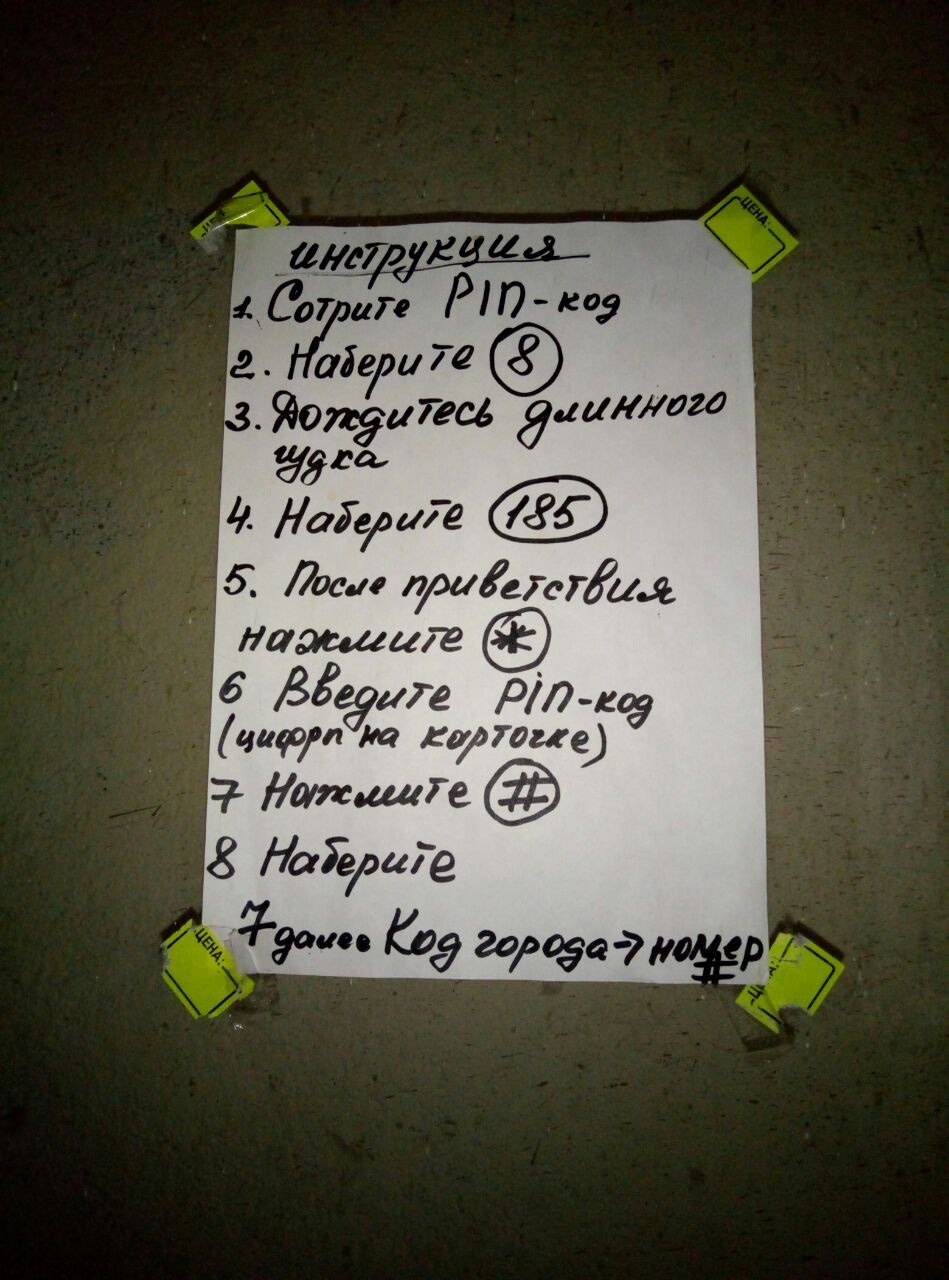 ЦЕНА:
инструкция
1. Сотрите PIN-код
2. Наберите 8
3. Дождитесь длинного
гудка
4. Наберите 185
5. После приветствия
нажмите *
6 Введите PIN-код
(цифры на карточке)
7 Нажмите #
8 Наберите
7 далее Код города → номер
#
ЦЕНА:
ЦЕНА: